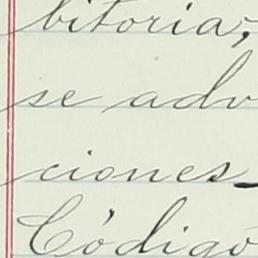 bitoria,
se adv
ciones
Código